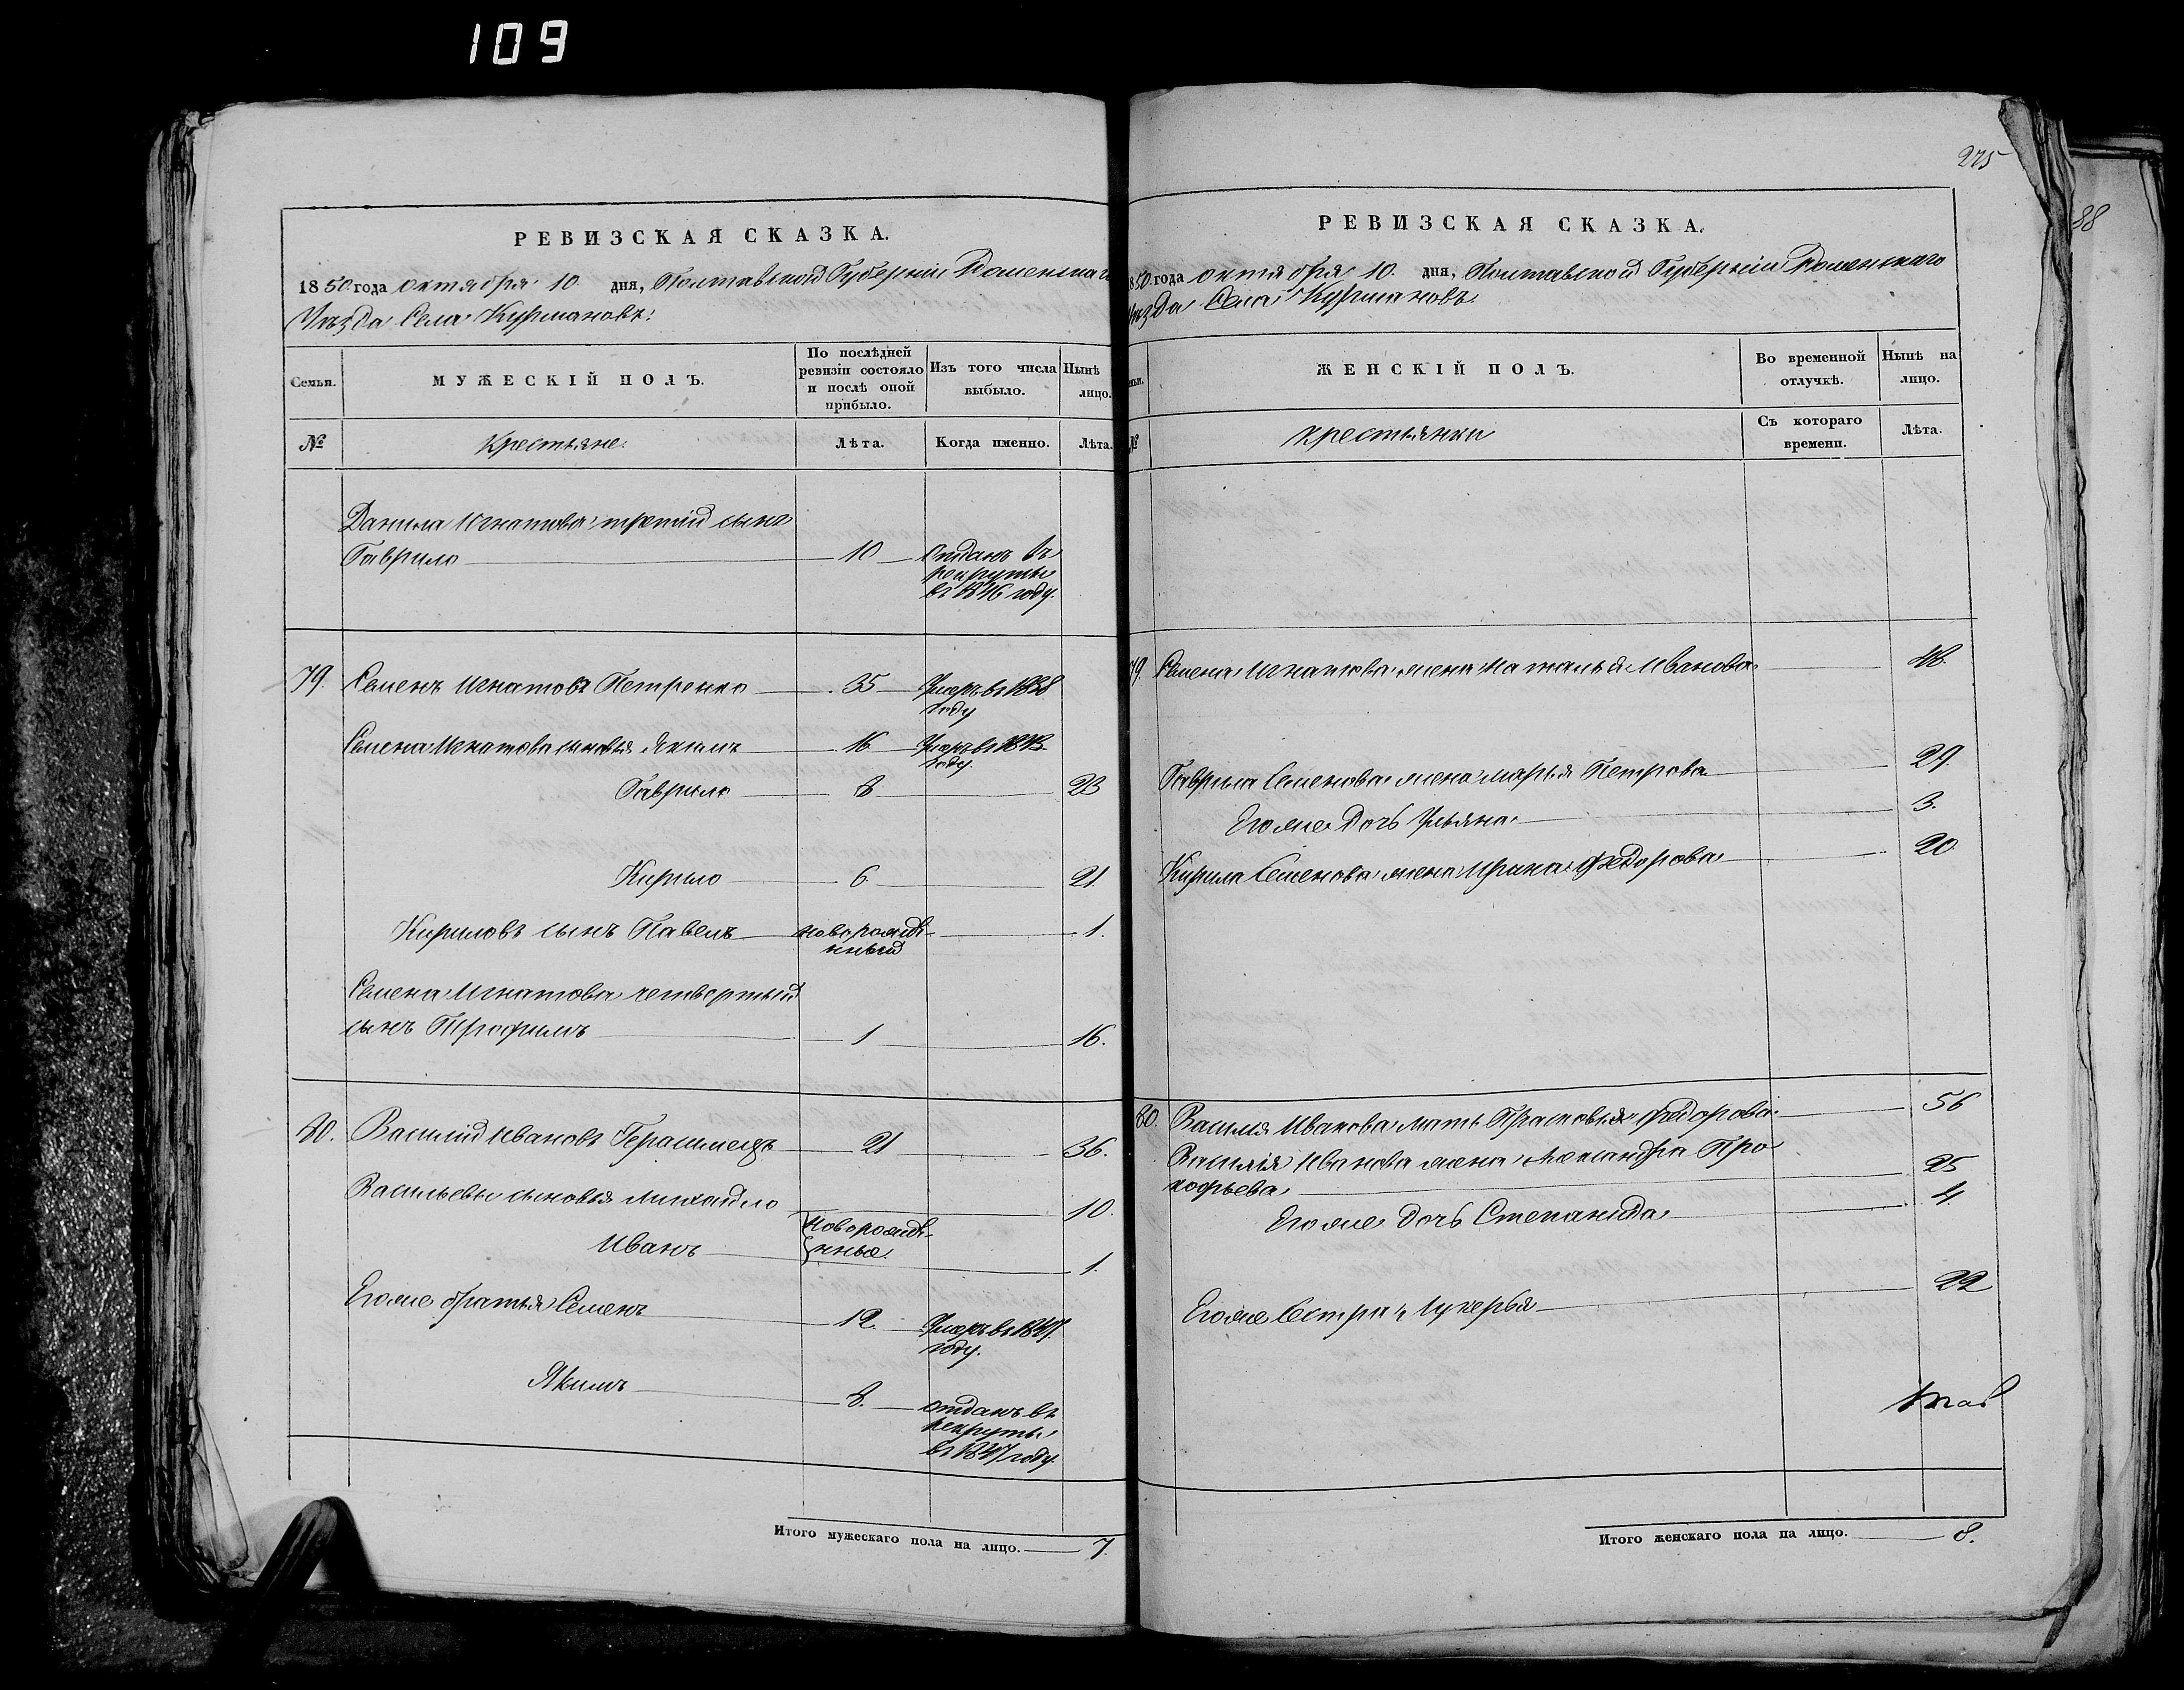 109
РЕВИЗСКАЯ СКАЗКА.
1850 года октября 10 дня, Полтавской Губернiи Роменскаго
Уѣзда Села Курмановъ:
Семьи.
МУЖЕСКІЙ ПОЛЪ.
По послѣдней ревизіи состояло и послѣ оной прибыло.
Изъ того числа выбыло.
Нынѣ лицо.
№
Крестьяне.
Лѣта.
Когда именно.
Лѣта.
Данила Игнатова третій сынъ
Гаврило 10 Отданъ въ
рекруты
въ 1846 году.
79. Семенъ Игнатовъ Петренко 35 Умеръ въ 1838
году
Семена Игнатова сыновья Якимъ 16 Умеръ въ 1843
году.
Гаврило 8 23
Кирило 6 21.
Кириловъ сынъ Павелъ новорожде- 1.
нный
Семена Игнатова четвертый
сынъ Трофимъ 1 16.
80. Василій Ивановъ Герасимецъ 21 36.
Васильевы сыновья Михайло 10.
новорожде-
Иванъ нные. 1.
Егоже братья Семенъ 12. Умеръ въ 1847
году.
Якимъ 8. отданъ въ
рекруты
въ 1847 году
Итого мужескаго пола на лицо. 7.
275
РЕВИЗСКАЯ СКАЗКА.
850. года октября 10. дня, Полтавской Губерніи Роменскаго
Уѣзда Села Курмановъ
ЖЕНСКІЙ ПОЛЪ.
Во временной отлучкѣ.
Нынѣ на лицо.
№
крестьянки
Съ котораго времени.
Лѣта.
79. Семена Игнатова жена Наталья Иванова 48.
Гаврила Семенова жена Марья Петрова 29
Егоже дочь Ульяна 3.
Кирила Семенова жена Ирина Федорова 20
80. Василія Иванова мать Прасковья Федорова 56
Василія Иванова жена Александра Про
кофьева 25
Егоже дочь Степанида 4.
Егоже Сестра Лукерья 22
Итого женскаго пола на лицо. 8.
88